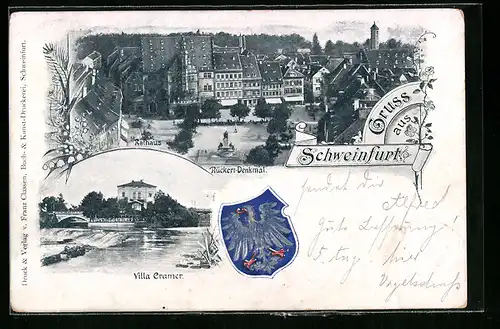 Druck & Verlag v. Franz Classen, Buch- & Kunst-Druckerei, Schweinfurt.
Rathaus
Rückert-Denkmal.
Gruss
aus
Schweinfurt
Villa Cramer.
sendet dir
Alfred
Gute